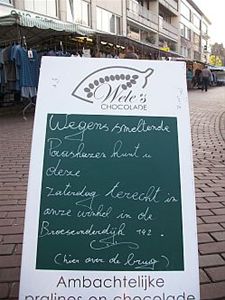 Wele's
CHOCOLADE
Wegens smeltende
Paashazen kunt u
deze
zaterdag terecht in
onze winkel in de
Broesemderdijk 142.
(hier over de brug)
Ambachtelijke
pralines en chocolade